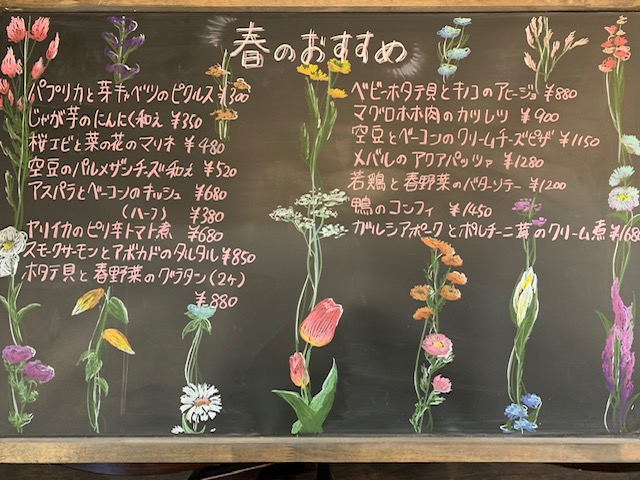 春のおすすめ
パプリカと芽キャベツのピクルス ¥300
じゃが芋のにんにく和え ¥350
桜エビと菜の花のマリネ ¥480
空豆のパルメザンチーズ和え ¥520
アスパラとベーコンのキッシュ ¥680
(ハーフ) ¥380
ヤリイカのピリ辛トマト煮 ¥680
スモークサーモンとアボカドのタルタル ¥850
ホタテ貝と春野菜のグラタン(2ヶ)
¥880
ベビーホタテ貝とキノコのアヒージョ ¥880
マグロホホ肉のカツレツ ¥900
空豆とベーコンのクリームチーズピザ ¥1150
メバルのアクアパッツァ ¥1280
若鶏と春野菜のバターソテー ¥1200
鴨のコンフィ ¥1450
ガルシアポークとポルチーニ茸のクリーム煮 ¥1680